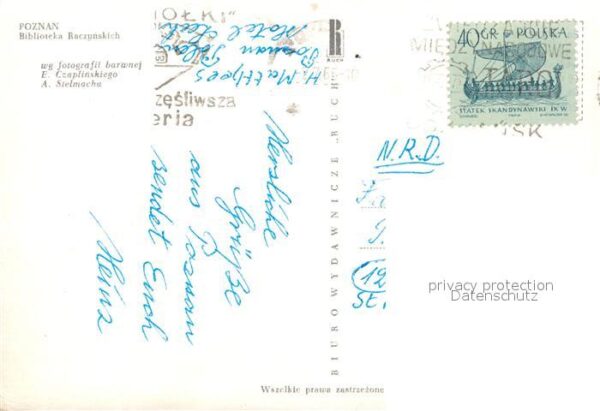 POZNAŃ
Biblioteka Raczyńskich
wg fotografii barwnej
E. Czaplińskiego
A. Sielmacha
IOŁKI"
zęśliwsza
eria
H. Matthees
Poznan Polen
Hotel Lech
Herzliche
Grüße
aus Poznan
sendet Euch
Heinz
RUCH
BIURO WYDAWNICZE „RUCH"
Wszelkie prawa zastrzeżone
40 GR POLSKA
STATEK SKANDYNAWSKI IX W.
N.R.D.
12
privacy protection
Datenschutz